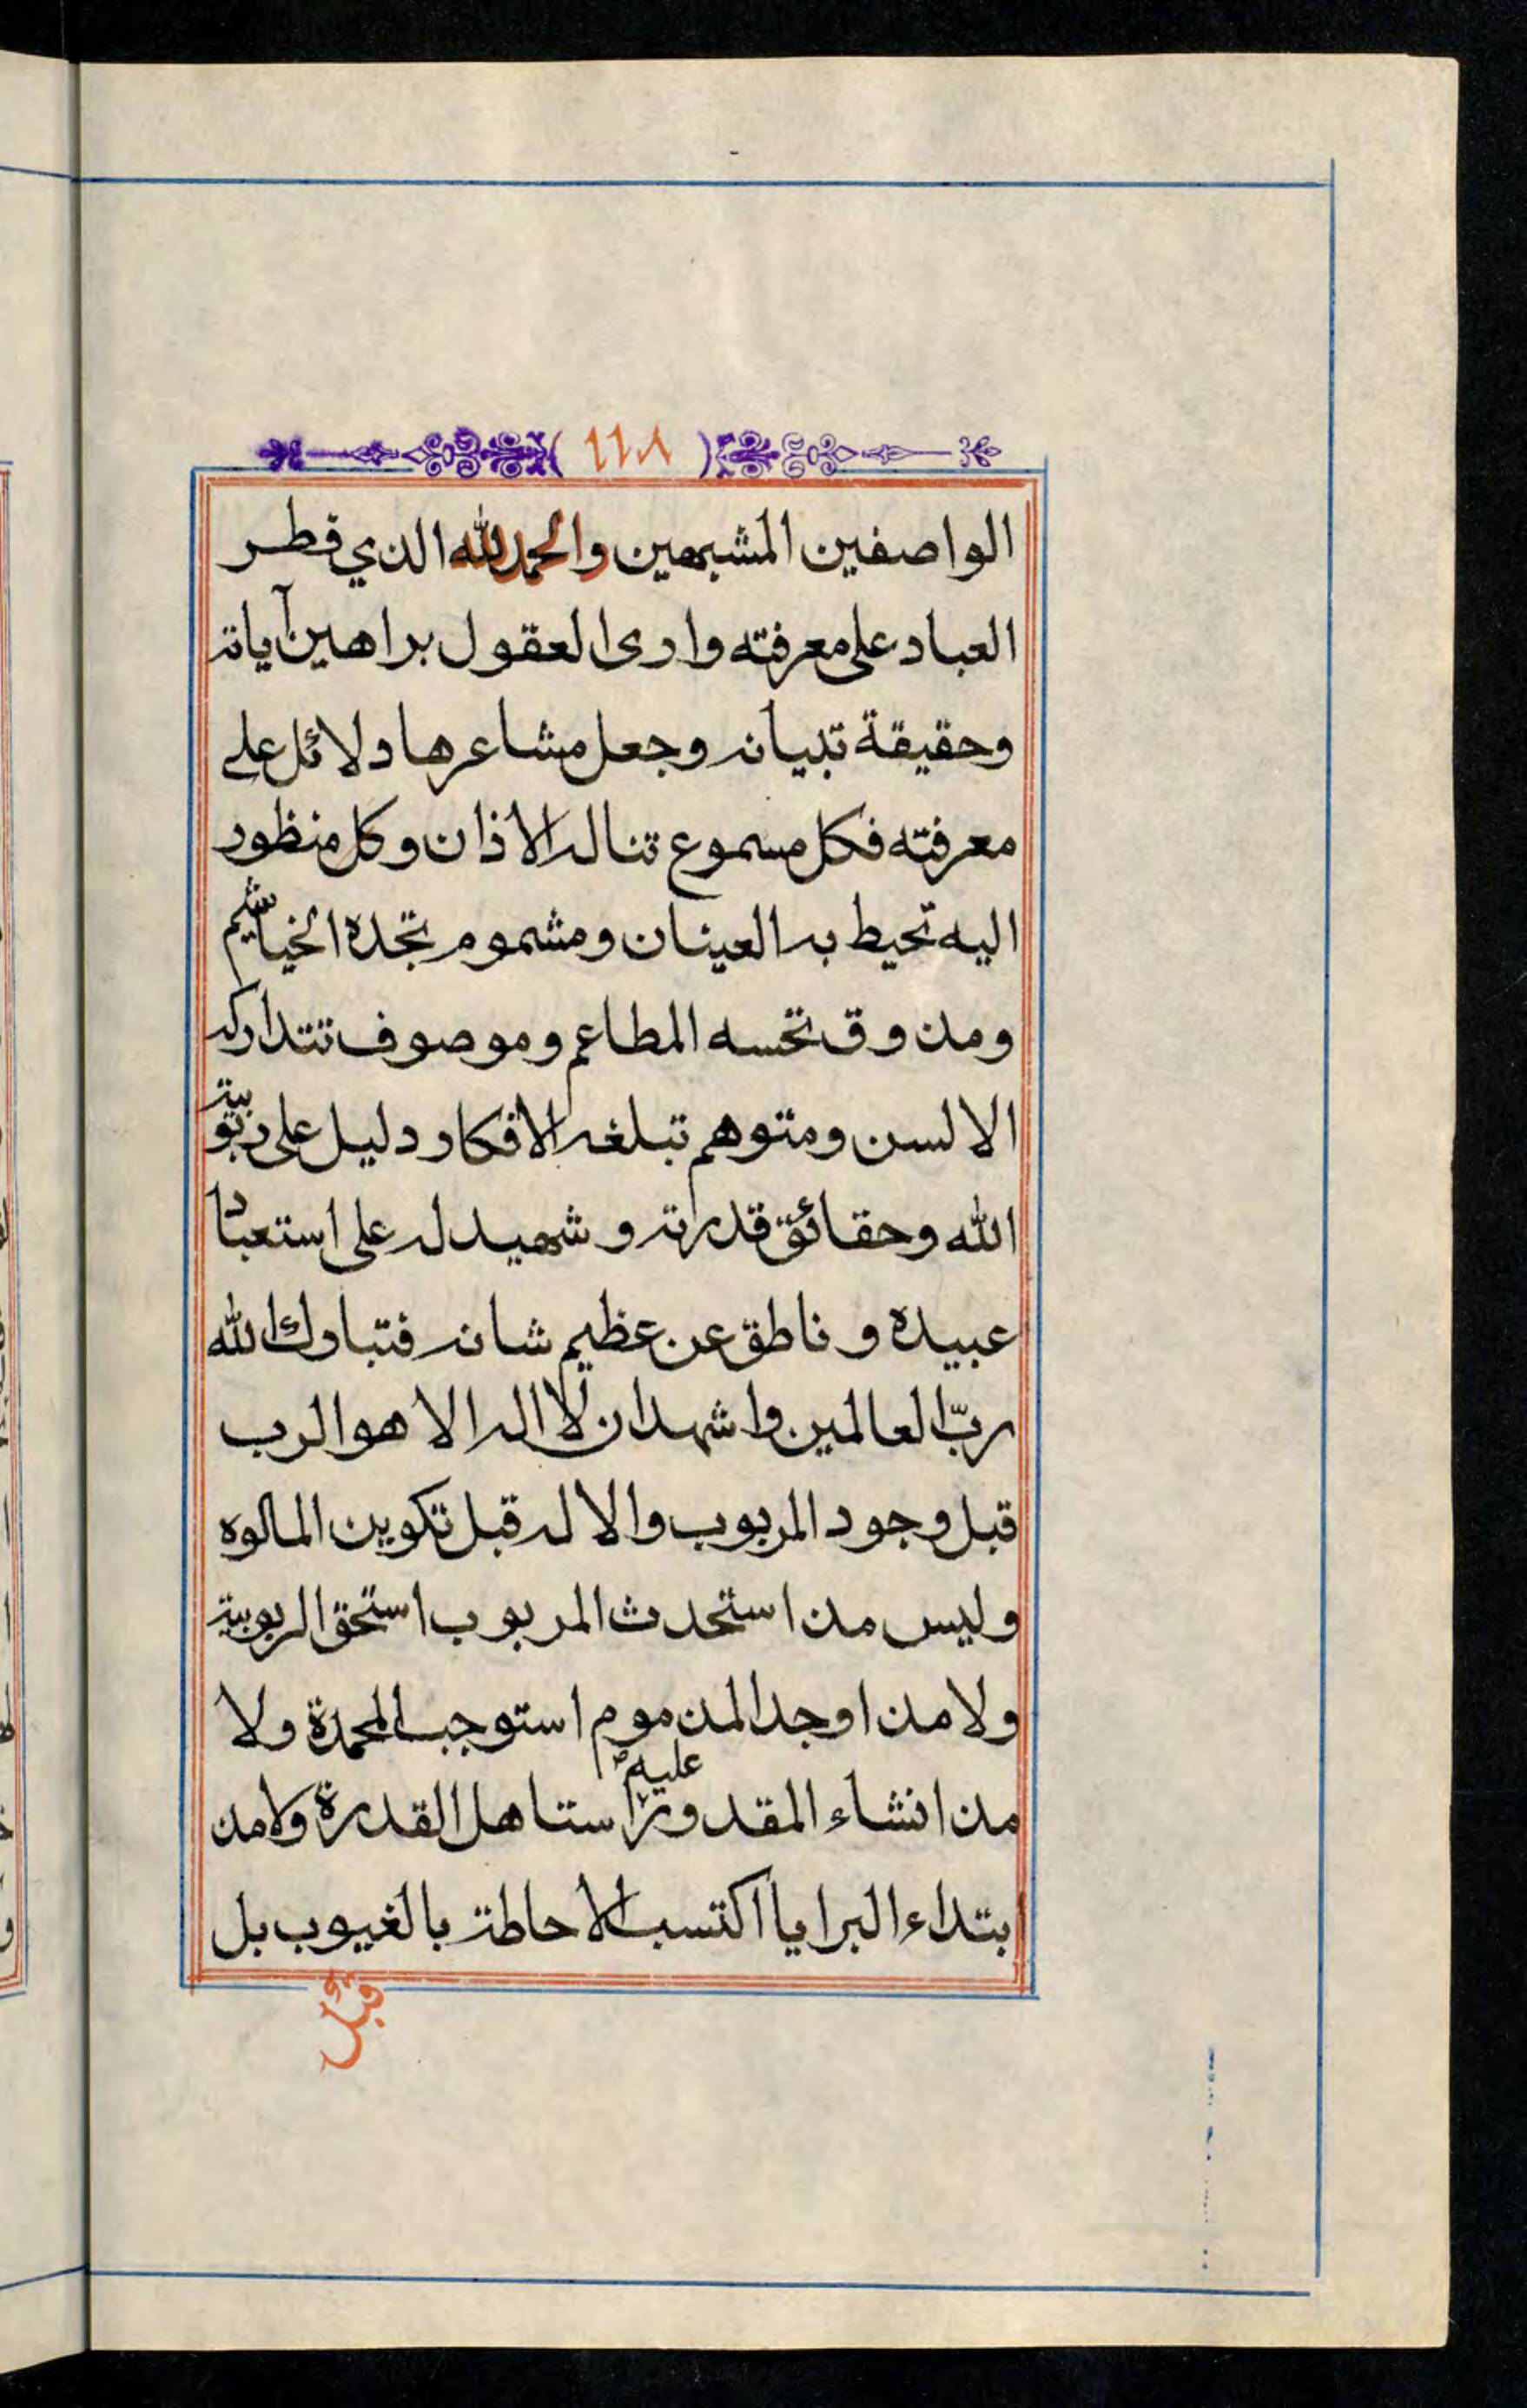 ١١٨
الواصفين المشبهين والحمد لله الذي فطر
العباد على معرفته وارى العقول براهين آياته
وحقيقة تبيانه وجعل مشاعرها دلائل على
معرفته فكل مسموع تناله الاذان وكل منظور
اليه تحيط به العينان ومشموم تجده الخياشيم
ومذوق تحسه المطاعم وموصوف تتداركه
الالسن ومتوهم تبلغه الافكار دليل على ربوبية
الله وحقائق قدرته وشهيد له على استعباد
عبيده وناطق عن عظيم شانه فتبارك الله
ربّ العالمين واشهد ان لا اله الا هو الرب
قبل وجود المربوب والاله قبل تكوين المالوه
وليس مذ استحدث المربوب استحق الربوبية
ولا مذ اوجد المذموم استوجب المحمدة ولا
مذ انشاء المقدور عليهم استاهل القدرة ولا مذ
ابتداء البرايا اكتسب الاحاطة بالغيوب بل
قبل